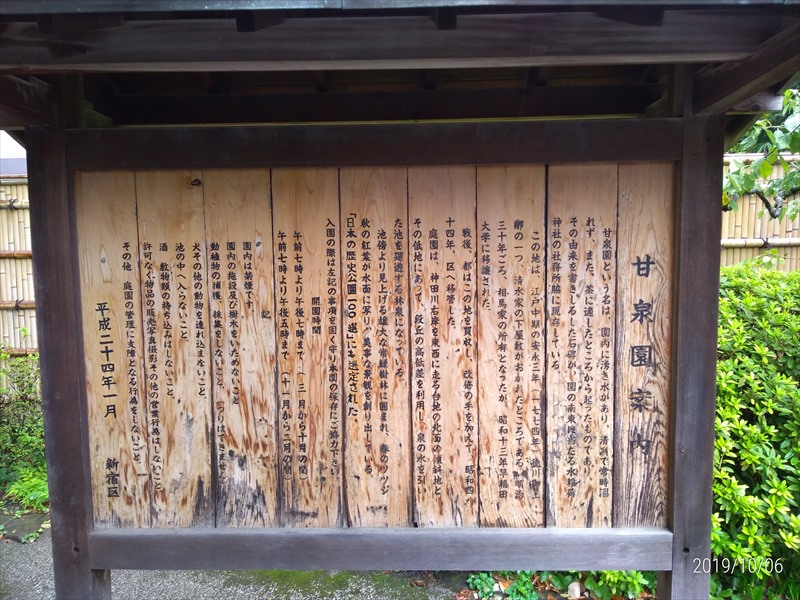 甘泉園案内
甘泉園という名は、園内に湧き水があり、清冽で常時涸
れず、また、茶に適したところから起ったものであり、
その由来を書きしるした石碑が、園の南東隣
神社の社務所脇に現存している。
この地は、江戸中期の安永三年(一七七四年)徳川
卿の一つ、清水家の下屋敷がおかれたところである。明治
三十年ごろ、相馬家の所有となったが、昭和十三年早稲田
大学に移譲された。
戦後、都はこの地を買収し、改修の手を加えて、昭和四
十四年、区へ移管した。
庭園は、神田川右岸を東西に走る台地の北面の傾斜地と
その低地にあって、段丘の高低差を利用し、泉の水を引い
た池を廻遊する林泉になっている。
池傍より見上げる雄大な常緑樹林に囲まれ、春のツツジ
秋の紅葉が水面に写り、美事な景観を創り出している。
「日本の歴史公園一〇〇選」にも選定された。
入園の際は左記の事項を固く守り本園の保存にご協力下さい
開園時間
午前七時より午後七時まで(三月から十月の間)
午前七時より午後五時まで(十一月から二月の間)
記
園内は禁煙です
園内の施設及び樹木をいためないこと
動植物の捕獲、採集をしないこと、つりはできません
犬その他の動物を連れ込まないこと
池の中へ入らないこと
酒、穀物類の持ち込みはしないこと
許可なく物品の販売写真撮影その他の営業行為はしないこと
その他、庭園の管理に支障となる行為をしないこと
平成二十四年一月
新宿区
2019/10/06